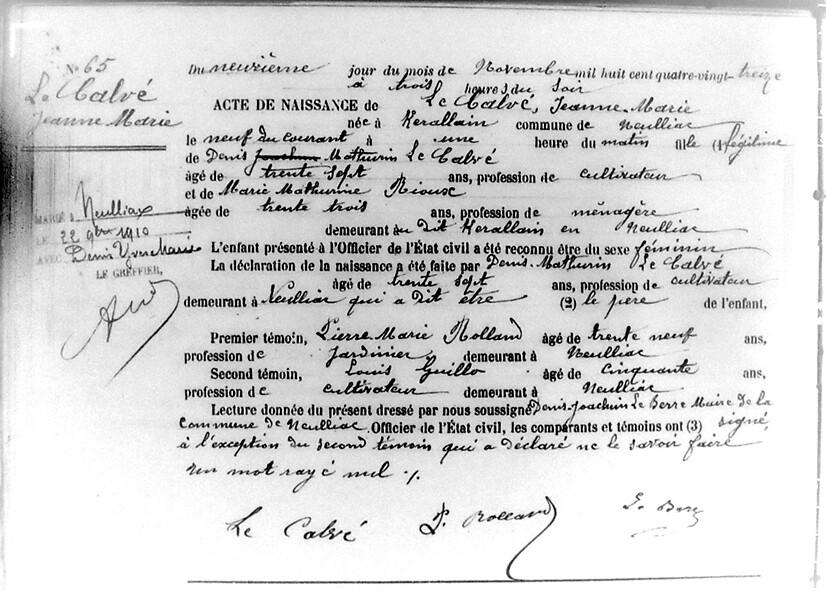 N° 65
Le Calvé
Jeanne Marie
MARIÉ à Neulliac
LE 22 9bre 1910
AVEC Denis
LE GREFFIER,
Du neuvième jour du mois de Novembre mil huit cent quatre-vingt-treize
à trois heures du soir
ACTE DE NAISSANCE de Le Calvé, Jeanne-Marie
née à Kerallain commune de Neulliac
le neuf du courant à une heure du matin fille (1) légitime
de Denis Joachim Mathurin Le Calvé
âgé de trente sept ans, profession de cultivateur
et de Marie Mathurine Rioux
âgée de trente trois ans, profession de ménagère
demeurant au dit Kerallain en Neulliac
L'enfant présenté à l'Officier de l'État civil a été reconnu être du sexe féminin
La déclaration de la naissance a été faite par Denis-Mathurin Le Calvé
âgé de trente sept ans, profession de cultivateur
demeurant à Neulliac qui a dit être (2) le père de l'enfant,
Premier témoin, Pierre-Marie Rolland âgé de trente neuf ans,
profession de Jardinier demeurant à Neulliac
Second témoin, Louis Guillo âgé de cinquante ans,
profession de cultivateur demeurant à Neulliac
Lecture donnée du présent dressé par nous soussigné Denis-Joachim Le Berre Maire de la
Commune de Neulliac. Officier de l'État civil, les comparants et témoins ont (3) signé
à l'exception du second témoin qui a déclaré ne le savoir faire
un mot rayé nul ./.
Le Calvé P. Rolland